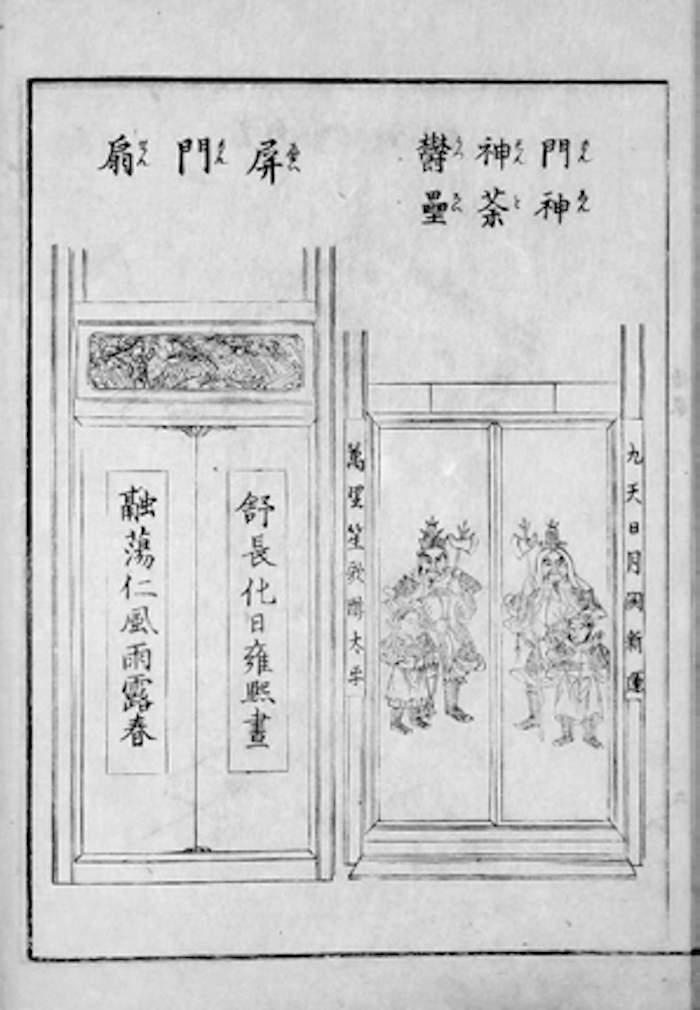 門神
神荼
鬱壘
九天日月開新運
萬里笙歌醉太平
屏
門
扇
舒長化日雍熙晝
融蕩仁風雨露春